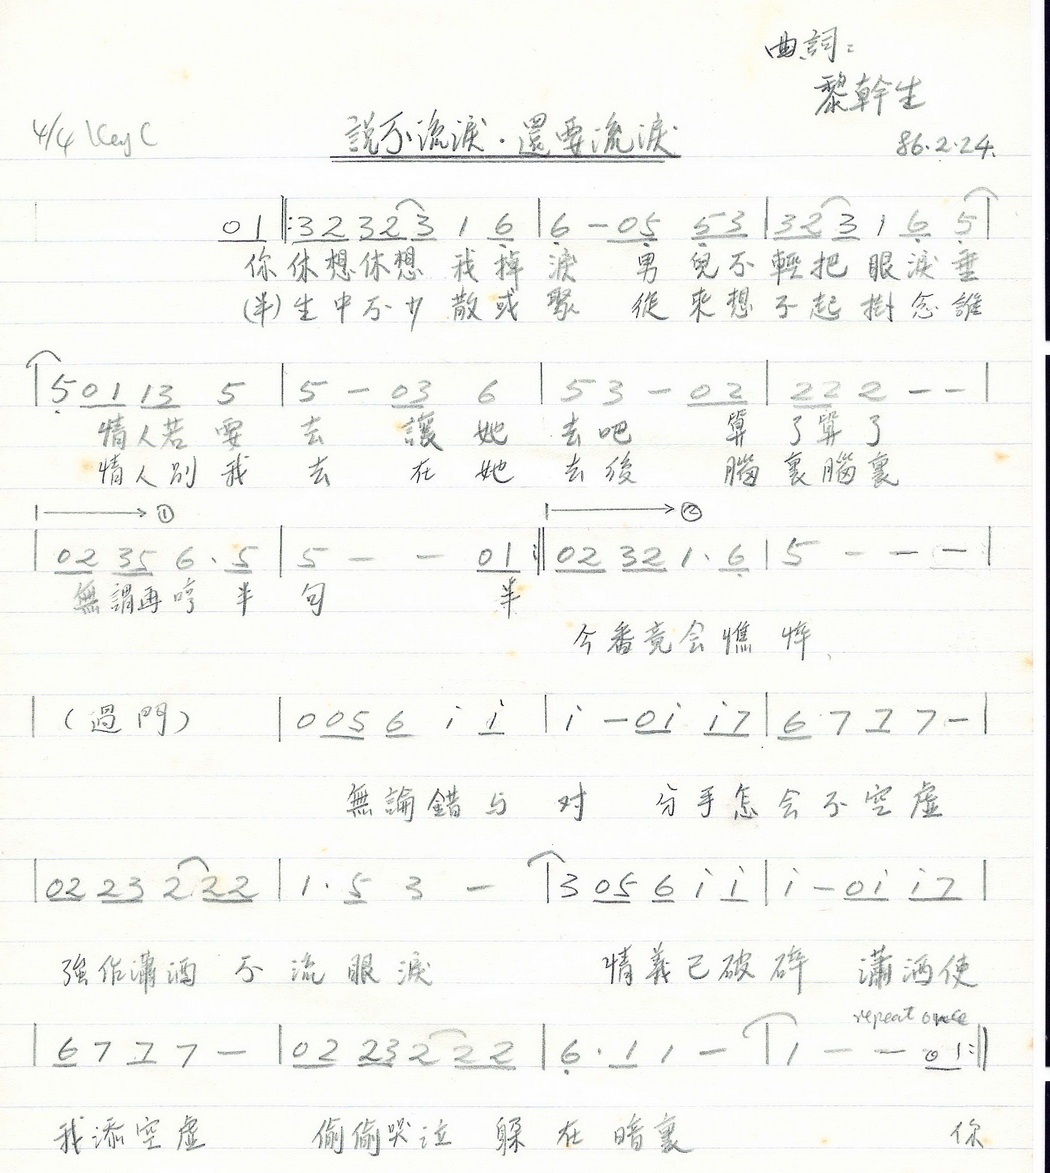 曲詞:
黎幹生
4/4 Key C
說不流淚·還要流淚
86.2.24.
01 ‖:32 323 1 6 | 6 – 05 53 | 323 1 6 5 |
你休想休想 我掉淚 男兒不輕把眼淚垂
(半)生中不少散或聚 從來想不起掛念誰
| 5 01 13 5 | 5 – 03 6 | 53 – 02 | 22 2 – – |
情人若要去 讓她去吧 算了算了
情人別我去 在她去後 腦裏腦裏
|→① |→②
| 02 35 6·5 | 5 – – 01 :‖ 02 32 1·6 | 5 – – – |
無謂再哼半句 半
今番竟会憔悴
| (過門) | 0 05 6 i i | i – 0i i7 | 6 7 7 7 – |
無論錯与对 分手怎会不空虛
| 02 23 2 22 | 1·5 3 – | 3 05 6 i i | i – 0i i7 |
強作瀟洒不流眼淚 情義已破碎 瀟洒使
repeat once
| 6 7 7 7 – | 02 232 22 | 6·1 1 – | 1 – – 01 :‖
我添空虛 偷偷哭泣躲在暗裏 你